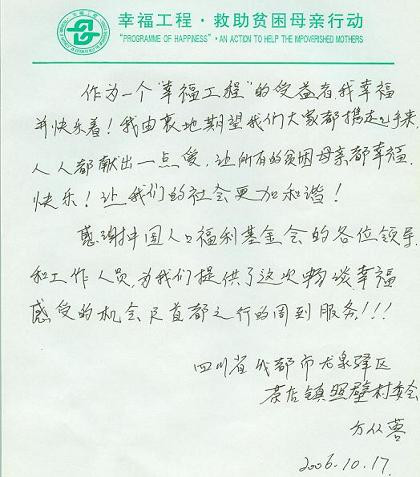 幸福工程·救助贫困母亲行动
"PROGRAMME OF HAPPINESS"·AN ACTION TO HELP THE IMPOVERISHED MOTHERS
作为一个“幸福工程”的受益者我幸福
并快乐着！我由衷地期望我们大家都携起手来
人人都献出一点爱，让所有的贫困母亲都幸福、
快乐！让我们的社会更加和谐！
感谢中国人口福利基金会的各位领导
和工作人员，为我们提供了这次畅谈幸福
感受的机会及首都之行的周到服务！！！
四川省成都市龙泉驿区
茶店镇照壁村委会
方从蓉
2006.10.17.